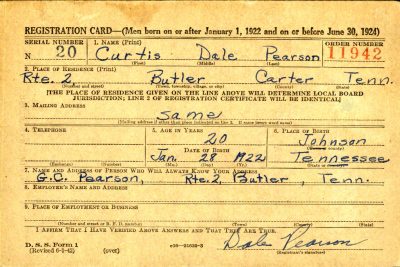 REGISTRATION CARD—(Men born on or after January 1, 1922 and on or before June 30, 1924)
SERIAL NUMBER 1. NAME (Print) ORDER NUMBER
N 20 Curtis Dale Pearson 11942
(First) (Middle) (Last)
2. PLACE OF RESIDENCE (Print)
Rte. 2. Butler Carter Tenn.
(Number and street) (Town, township, village, or city) (County) (State)
[THE PLACE OF RESIDENCE GIVEN ON THE LINE ABOVE WILL DETERMINE LOCAL BOARD
JURISDICTION; LINE 2 OF REGISTRATION CERTIFICATE WILL BE IDENTICAL]
3. MAILING ADDRESS
Same
(Mailing address if other than place indicated on line 2. If same insert word same)
4. TELEPHONE 5. AGE IN YEARS 6. PLACE OF BIRTH
20 Johnson
DATE OF BIRTH (Town or county)
Jan. 28 1922 Tennessee
(Exchange) (Number) (Mo.) (Day) (Yr.) (State or country)
7. NAME AND ADDRESS OF PERSON WHO WILL ALWAYS KNOW YOUR ADDRESS
G.C. Pearson, Rte. 2, Butler, Tenn.
8. EMPLOYER'S NAME AND ADDRESS
9. PLACE OF EMPLOYMENT OR BUSINESS
(Number and street or R. F. D. number) (Town) (County) (State)
I AFFIRM THAT I HAVE VERIFIED ABOVE ANSWERS AND THAT THEY ARE TRUE.
D. S. S. Form 1 Dale Pearson
(Revised 6-9-42) (over) (Registrant's signature)